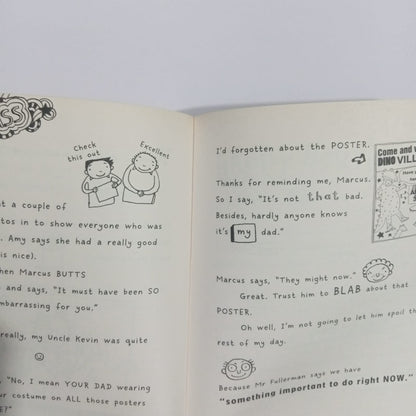 SS
Check
this out
Excellent
t a couple of
tos in to show everyone who was
. Amy says she had a really good
is nice).
hen Marcus BUTTS
and says, "It must have been SO
mbarrassing for you."
really, my Uncle Kevin was quite
, "No, I mean YOUR DAD wearing
ur costume on ALL those posters
E?"
I'd forgotten about the POSTER.
Thanks for reminding me, Marcus.
So I say, "It's not that bad.
Besides, hardly anyone knows
it's my dad."
Come and v
DINO VILL
Marcus says, "They might now."
Great. Trust him to BLAB about that
POSTER.
Oh well, I'm not going to let him spoil th
rest of my day.
Because Mr Fullerman says we have
"something important to do right NOW."